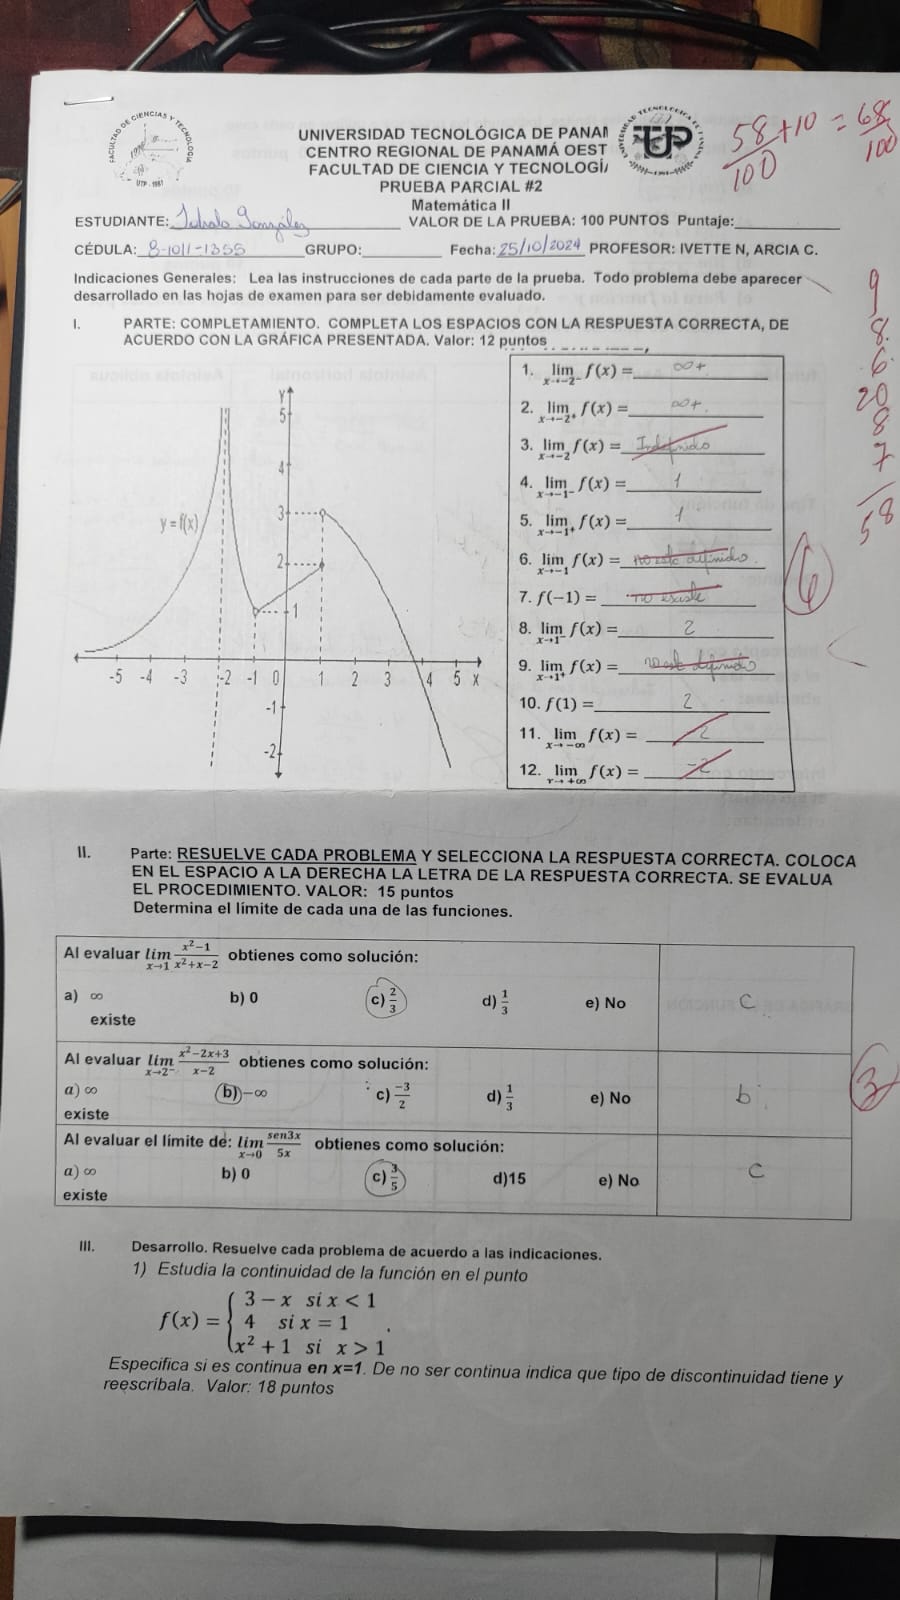 FACULTAD DE CIENCIAS Y TECNOLOGÍA
UTP - 1981
UNIVERSIDAD TECNOLÓGICA DE PANAM
CENTRO REGIONAL DE PANAMÁ OEST
FACULTAD DE CIENCIA Y TECNOLOGÍA
PRUEBA PARCIAL #2
Matemática II
58/100 + 10 = 68/100
ESTUDIANTE: González VALOR DE LA PRUEBA: 100 PUNTOS Puntaje:
CÉDULA: 8-1011-1355 GRUPO: Fecha: 25/10/2024 PROFESOR: IVETTE N, ARCIA C.
Indicaciones Generales: Lea las instrucciones de cada parte de la prueba. Todo problema debe aparecer
desarrollado en las hojas de examen para ser debidamente evaluado.
I. PARTE: COMPLETAMIENTO. COMPLETA LOS ESPACIOS CON LA RESPUESTA CORRECTA, DE
ACUERDO CON LA GRÁFICA PRESENTADA. Valor: 12 puntos
9
8
6
20
8
7
58
Y
5
4
3
2
1
y = f(x)
-5 -4 -3 -2 -1 0 1 2 3 4 5 X
-1
-2
1. lim x→-2⁻ f(x) = ∞+
2. lim x→-2⁺ f(x) = ∞+
3. lim x→-2 f(x) = Indefinido
4. lim x→-1⁻ f(x) = 1
5. lim x→-1⁺ f(x) = 1
6. lim x→-1 f(x) = no esta definido
7. f(-1) = no existe
8. lim x→1⁻ f(x) = 2
9. lim x→1⁺ f(x) = no esta definido
10. f(1) = 2
11. lim x→-∞ f(x) = 2
12. lim x→+∞ f(x) = -2
6
II. Parte: RESUELVE CADA PROBLEMA Y SELECCIONA LA RESPUESTA CORRECTA. COLOCA
EN EL ESPACIO A LA DERECHA LA LETRA DE LA RESPUESTA CORRECTA. SE EVALUA
EL PROCEDIMIENTO. VALOR: 15 puntos
Determina el límite de cada una de las funciones.
Al evaluar lim x→1 (x²-1)/(x²+x-2) obtienes como solución:
a) ∞ b) 0 c) 2/3 d) 1/3 e) No
existe
C
Al evaluar lim x→2⁻ (x²-2x+3)/(x-2) obtienes como solución:
a) ∞ b) -∞ c) -3/2 d) 1/3 e) No
existe
b
3
Al evaluar el límite de: lim x→0 sen3x/5x obtienes como solución:
a) ∞ b) 0 c) 3/5 d)15 e) No
existe
C
III. Desarrollo. Resuelve cada problema de acuerdo a las indicaciones.
1) Estudia la continuidad de la función en el punto
f(x) = { 3 - x si x < 1
4 si x = 1
x² + 1 si x > 1 .
Especifica si es continua en x=1. De no ser continua indica que tipo de discontinuidad tiene y
reescríbala. Valor: 18 puntos